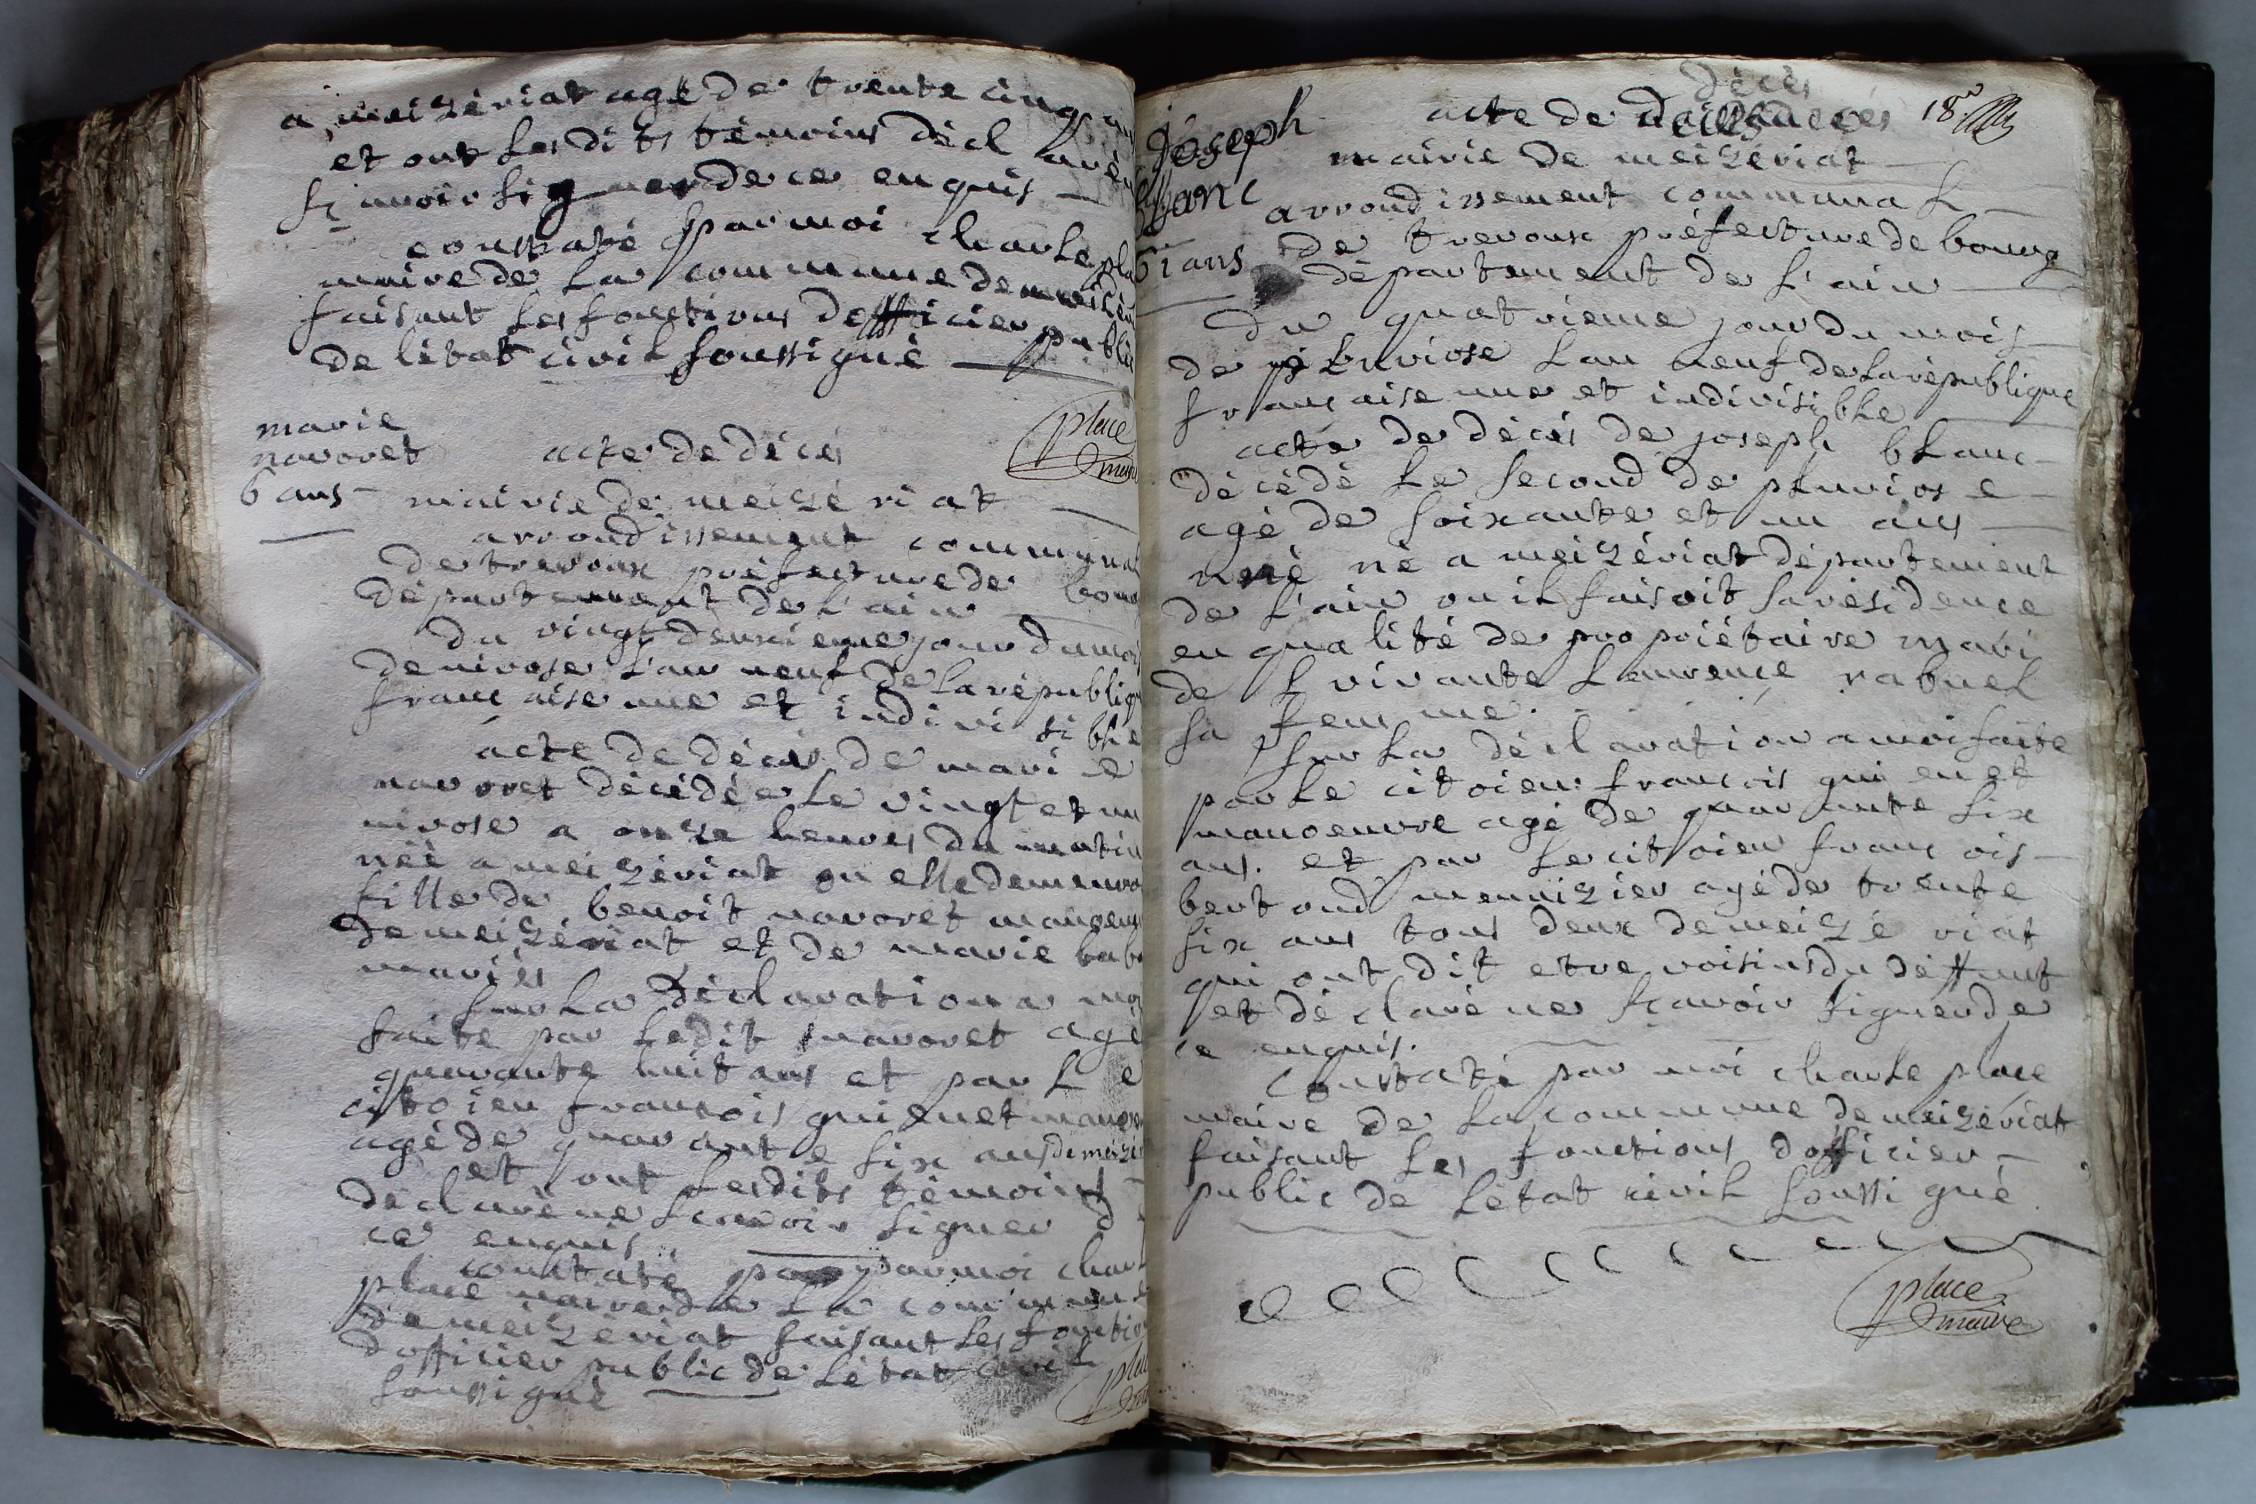 a meizériat agé de trente cinq ans
et ont lesdits témoins déclaré ne
sçavoir signer de ce enquis
constaté par moi charle pla
maire de la commune de meizér
faisant les fonctions dofficier public
de létat civil soussigné
place
maire
marie
navoret
6 ans
acte de décés
mairie de meizériat
arrondissement communal
de trevoux préfecture de bourg
département de l'ain
du vingt deuxieme jour du mois
de nivose l'an neuf de la républiq
française une et indivisible
acte de décés de marie
navoret décédée le vingt et un
nivose a onze heures du matin
néé a meizériat ou elle demeuro
fille de benoit navoret manoeuv
de meizériat et de marie
mariés
sur la déclaration a moi
faite par ledit navoret agé
quarante huit ans et par le
citoien françois quienet manoeu
agé de quarante six ans de meizér
et ont lesdits témoins
déclaré ne sçavoir signer d
ce enquis
constaté par moi charl
place maire de la commune
de meizériat faisant les fonction
dofficier public de létat civil
soussigné
place
joseph
blanc
61 ans
décés
acte de
18
mairie de meizériat
arrondissement communal
de trevoux préfecture de bourg
département de l'ain
du quatrieme jour du mois
de pluviose l'an neuf de la république
française une et indivisible
acte de décés de joseph blanc
décédé le second de pluviose
agé de soixante et un ans
né a meizériat département
de l'ain ou il faisoit sa résidence
en qualité de propriétaire mari
de vivante laurence rabuel
sa femme
sur la déclaration a moi faite
par le citoien françois quienet
manoeuvre agé de quarante six
ans. et par le citoien françois
bertoud menuizier agé de trente
six ans tous deux de meizériat
qui ont dit etre voisins du déffunt
et déclaré ne sçavoir signer de
ce enquis.
Constaté par moi charle place
maire de la commune de meizériat
faisant les fonctions dofficier
public de létat civil soussigné
place
maire